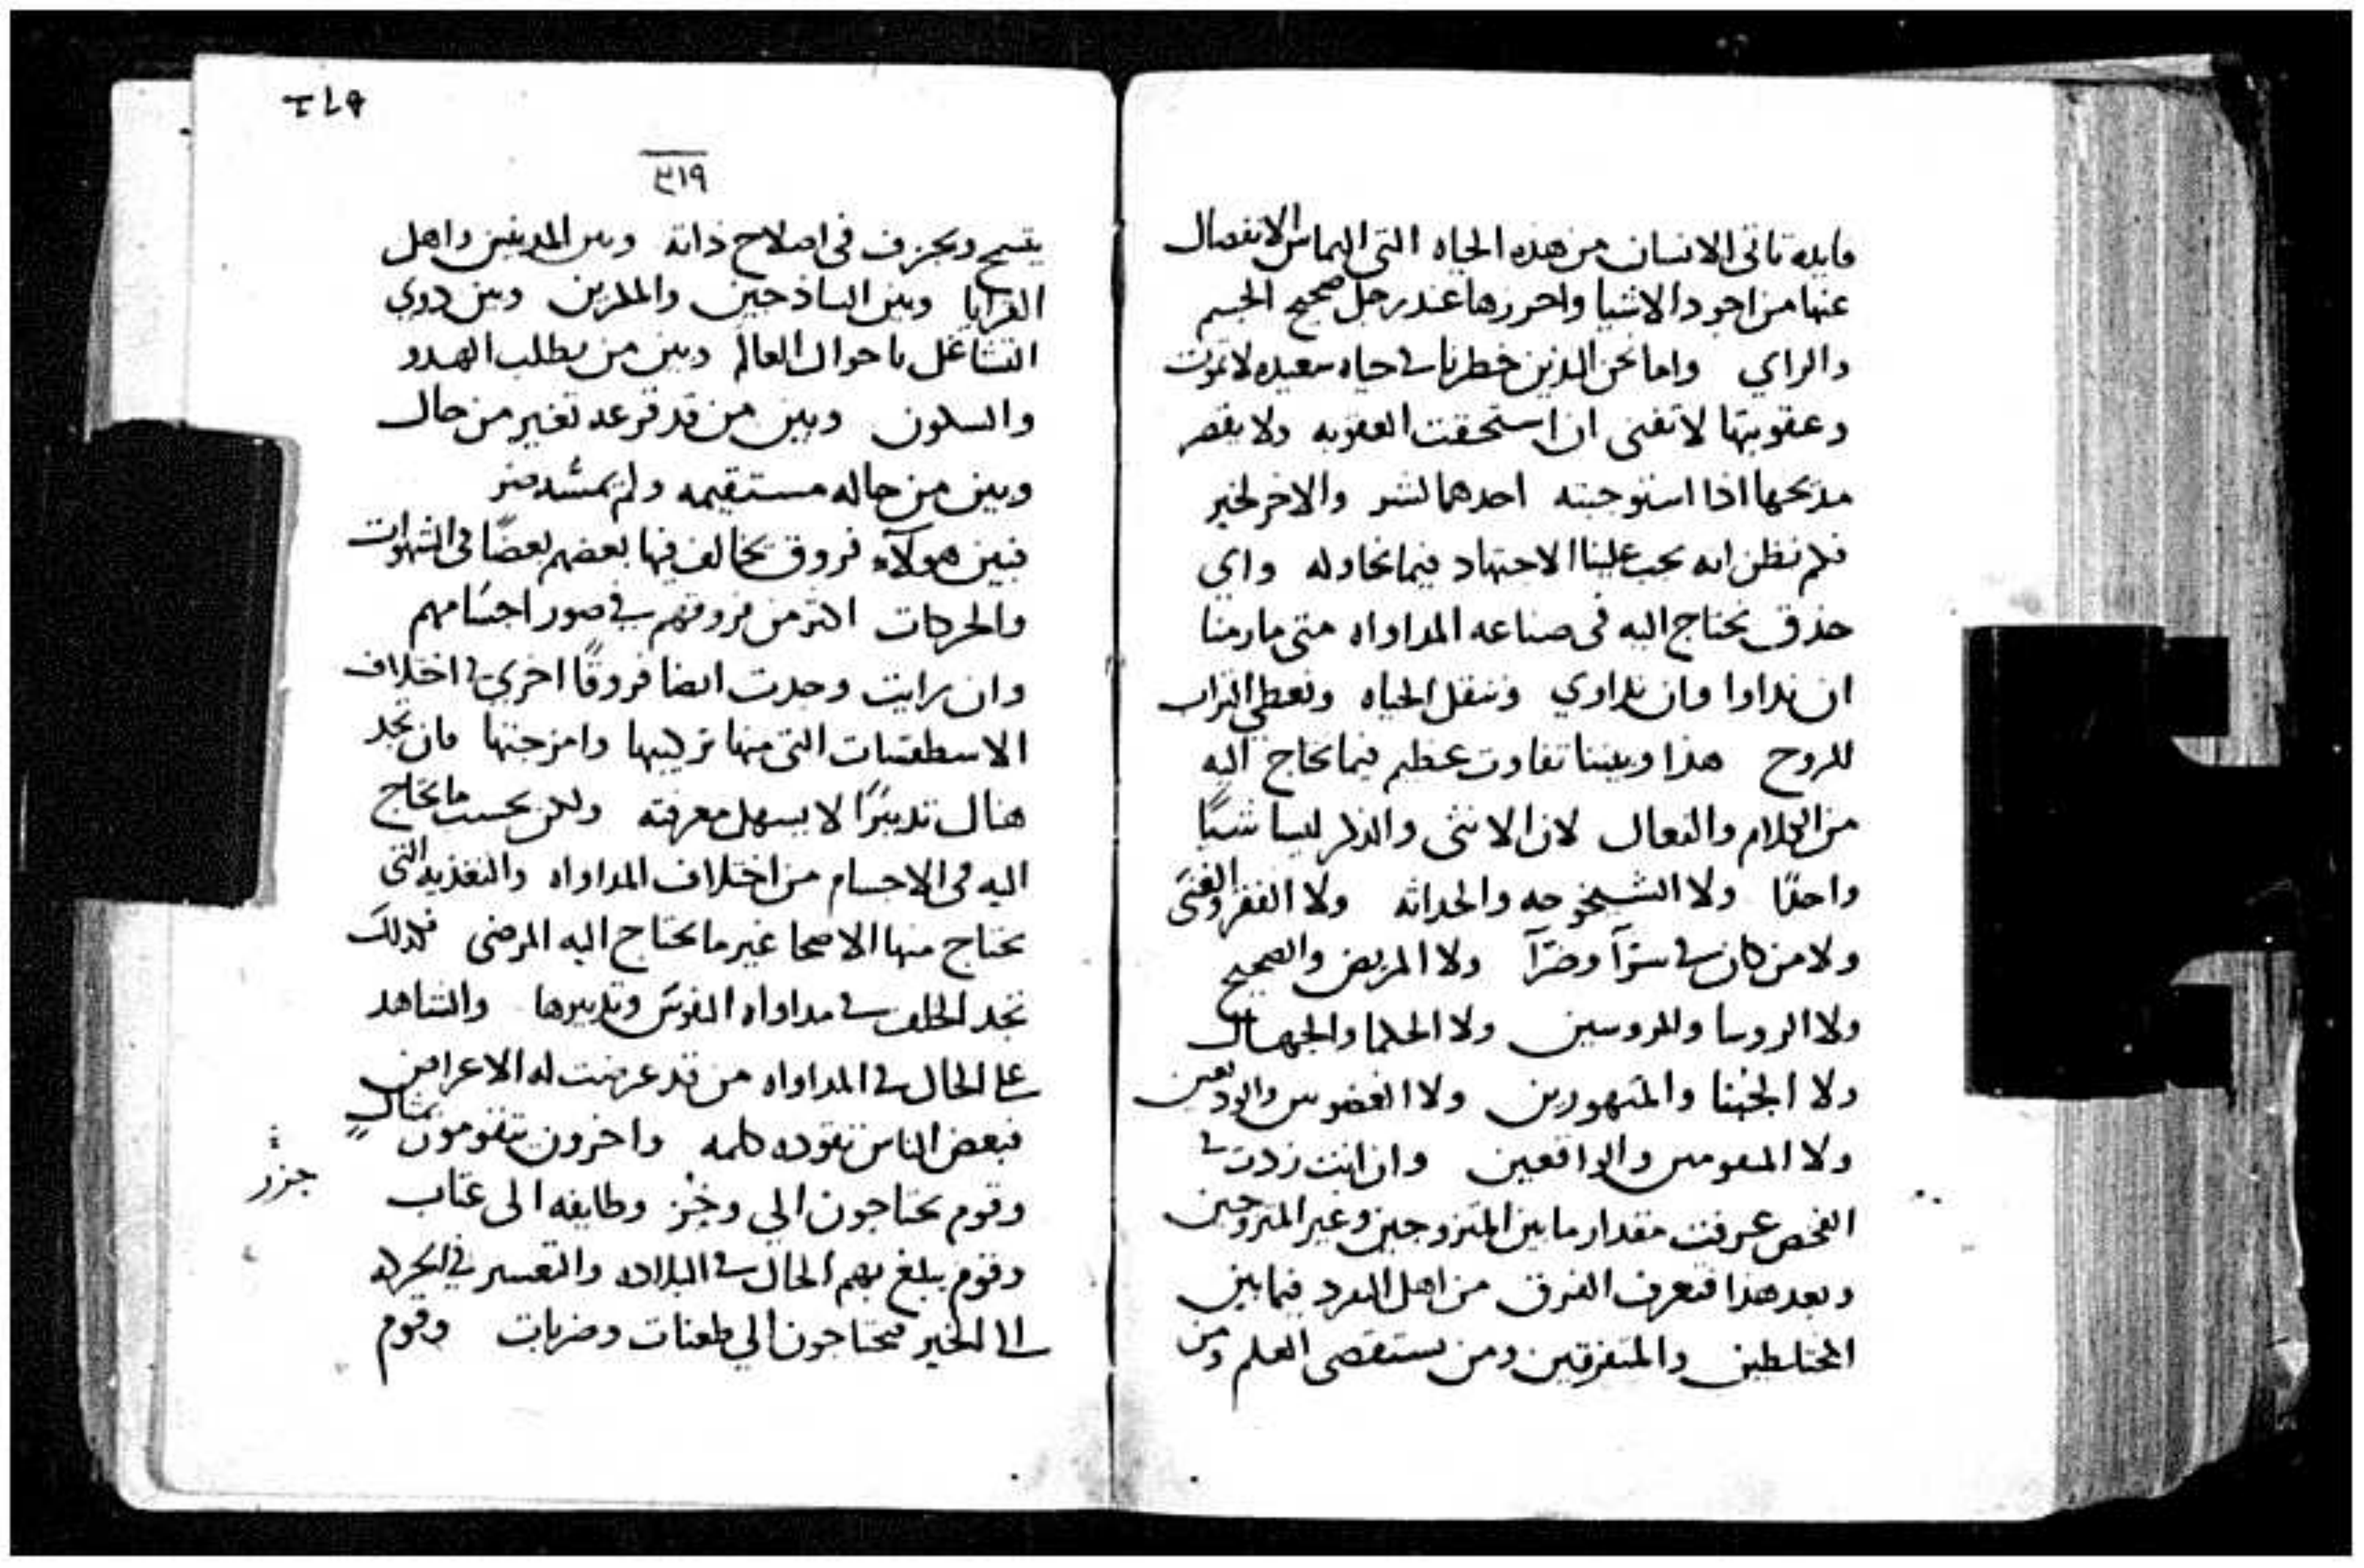 فايده تاتى الانسان من هذه الحياه التى التماس الانفصال
عنها من اجود الاشيا واحرزها عند رجل صحيح الجسم
والراي واما نحن الذين خطرنا فى حياه سعيده لا تموت
وعقوبتها لا تفنى ان استحقت العقوبه ولا يقصر
مديحها اذا استوجبته احدهما لشر والاخر لخير
فلم نظن انه يجب علينا الاجتهاد فيما نحاوله واي
حذق نحتاج اليه فى صناعه المداواه متى ما رمنا
ان نداوا وان نداوي وننقل الحياه ونعطى التراب
للروح هذا وبيننا تفاوت عظيم فيما نحتاج اليه
من الكلام والفعال لان الانثى والذكر ليسا شيئًا
واحدًا ولا الشيخوخه والحداثه ولا الفقر والغنى
ولا من كان فى سرّآ وضرّآ ولا المريض والصحيح
ولا الروسا والمروسين ولا الحكما والجهال
ولا الجبنا والمتهورين ولا الغضوبين والوديعين
ولا المقومين والواقعين وان انت زدت فى
الفحص عرفت مقدار ما بين المتزوجين وغير المتزوجين
وبعد هذا فتعرف الفرق من اهل التفرد فيما بين
المختلطين والمتفرقين ومن يستقصى العلم ومن
٣١٩
يتسمح ويجزف فى اصلاح ذاته وبين المدينيين واهل
القرايا وبين الساذجين والماكرين وبين ذوي
التشاغل باحوال العالم وبين من يطلب الهدو
والسكون وبين من قد قرعه تغير من حال
وبين من حاله مستقيمه ولم
فبين هولآء فروق يخالف فيها بعضهم بعضًا فى الشهوات
والحركات اكثر من فروقهم فى صور اجسامهم
وان رايت وجدت ايضا فروقًا اخرى فى اختلاف
الاسطقسات التى منها تركيبها وامزجتها فان نجد
هناك تدبيرًا لا يسهل معرفته ولكن بحسب ما نحتاج
اليه فى الاجسام من اختلاف المداواه والتغذيه التى
يحتاج منها الاصحا غير ما يحتاج اليه المرضى فكذلك
نجد الخلف فى مداواه النفوس وتدبيرها والشاهد
على الحال فى المداواه من قد عرضت له الاعراض
فبعض الناس تقوده كلمه واخرون يتقومون بمثالٍ
وقوم يحتاجون الي وخز وطايفه الى عتاب
جزر
وقوم يبلغ بهم الحال فى البلاده والتعسر فى الحركه
الى الخير فيحتاجون الي طعنات وضربات وقوم